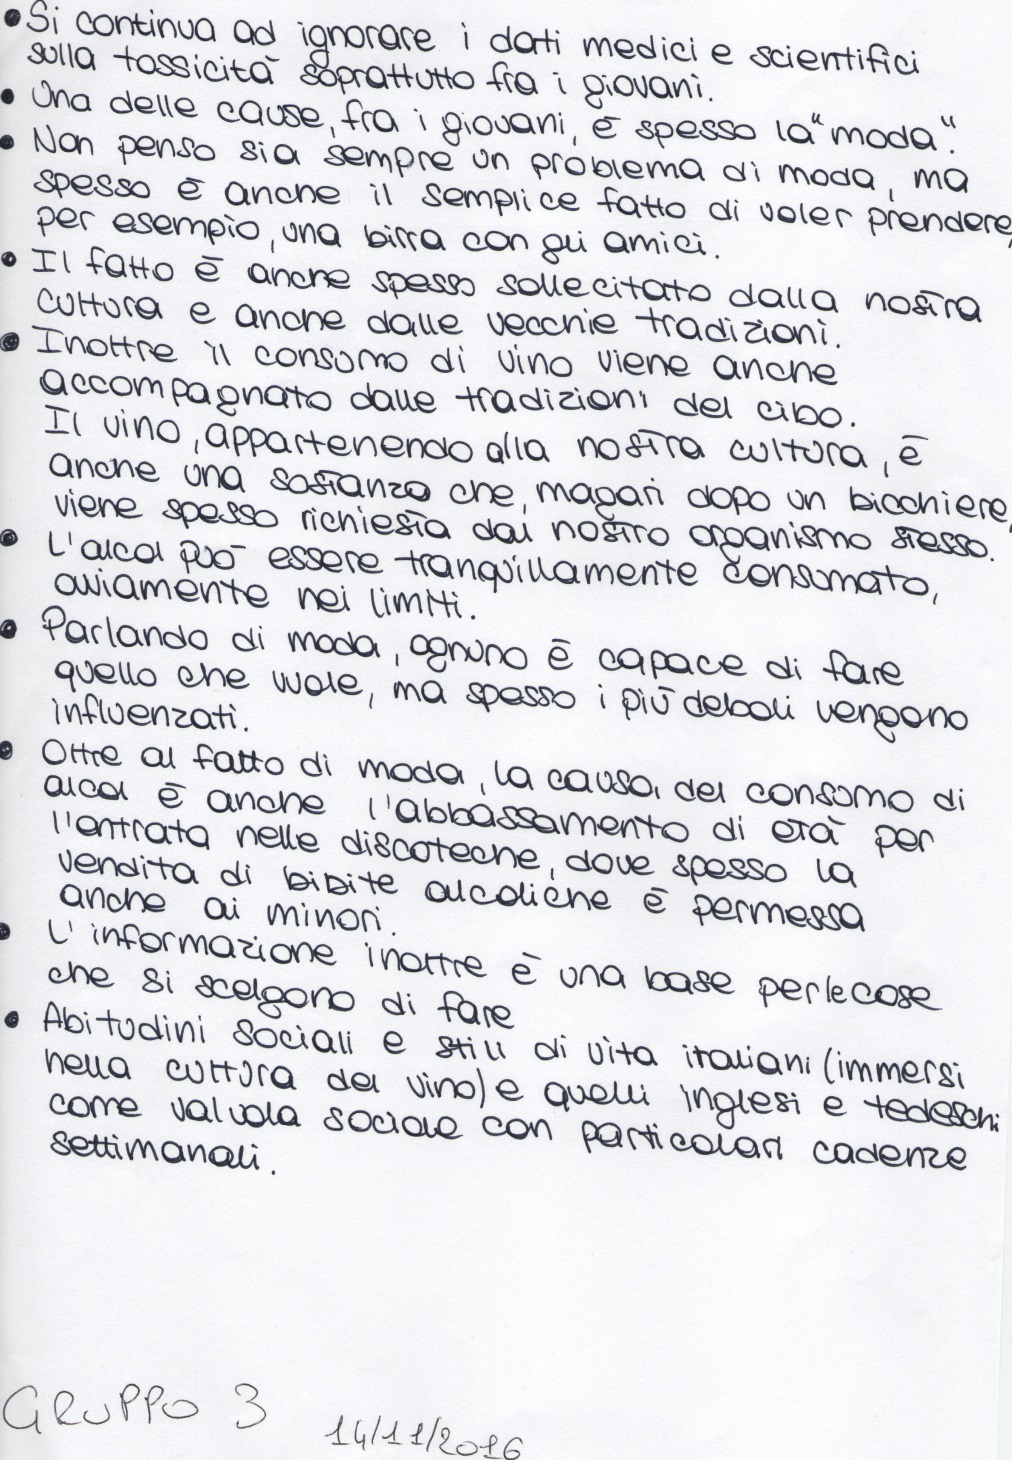 • Si continua ad ignorare i dati medici e scientifici
sulla tossicità soprattutto fra i giovani.
• Una delle cause, fra i giovani, è spesso la "moda".
• Non penso sia sempre un problema di moda, ma
spesso è anche il semplice fatto di voler prendere,
per esempio, una birra con gli amici.
• Il fatto è anche spesso sollecitato dalla nostra
cultura e anche dalle vecchie tradizioni.
• Inoltre il consumo di vino viene anche
accompagnato dalle tradizioni del cibo.
Il vino, appartenendo alla nostra cultura, è
anche una sostanza che, magari dopo un bicchiere,
viene spesso richiesta dal nostro organismo stesso.
• L'alcol può essere tranquillamente consumato,
ovviamente nei limiti.
• Parlando di moda, ognuno è capace di fare
quello che vuole, ma spesso i più deboli vengono
influenzati.
• Oltre al fatto di moda, la causa del consumo di
alcol è anche l'abbassamento di età per
l'entrata nelle discoteche, dove spesso la
vendita di bibite alcoliche è permessa
anche ai minori.
• L'informazione inoltre è una base per le cose
che si scelgono di fare
• Abitudini sociali e stili di vita italiani (immersi
nella cultura del vino) e quelli inglesi e tedeschi
come valvola sociale con particolari cadenze
settimanali.
GRUPPO 3
14/11/2016